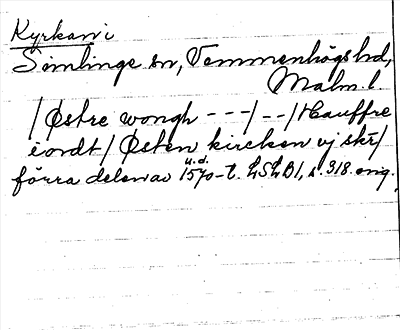 Kyrkan i
Simlinge sn, Vemmenhögs hd,
Malm. l.
/ Østre wongh - - - / - - / Hauffre
iordt / Østen kircken vj skr /
förra delen av 1570-t. LSLB1, s. 318. orig.
u.d.